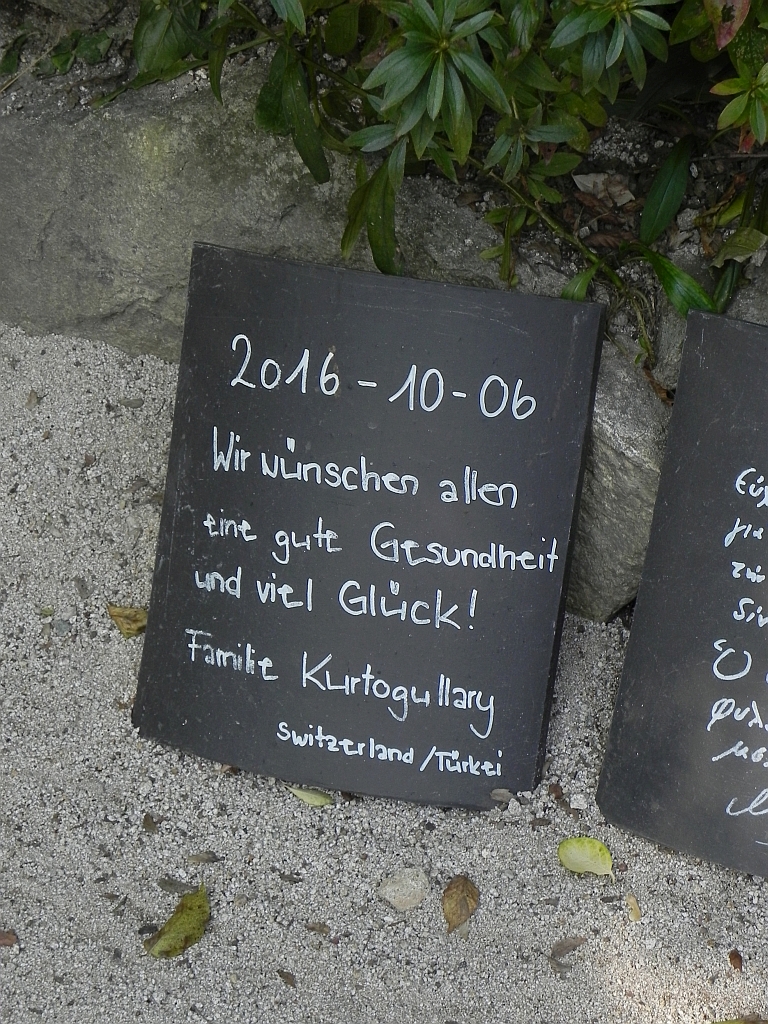 2016-10-06
Wir wünschen allen
eine gute Gesundheit
und viel Glück!
Familie Kurtogullary
Switzerland/Türkei